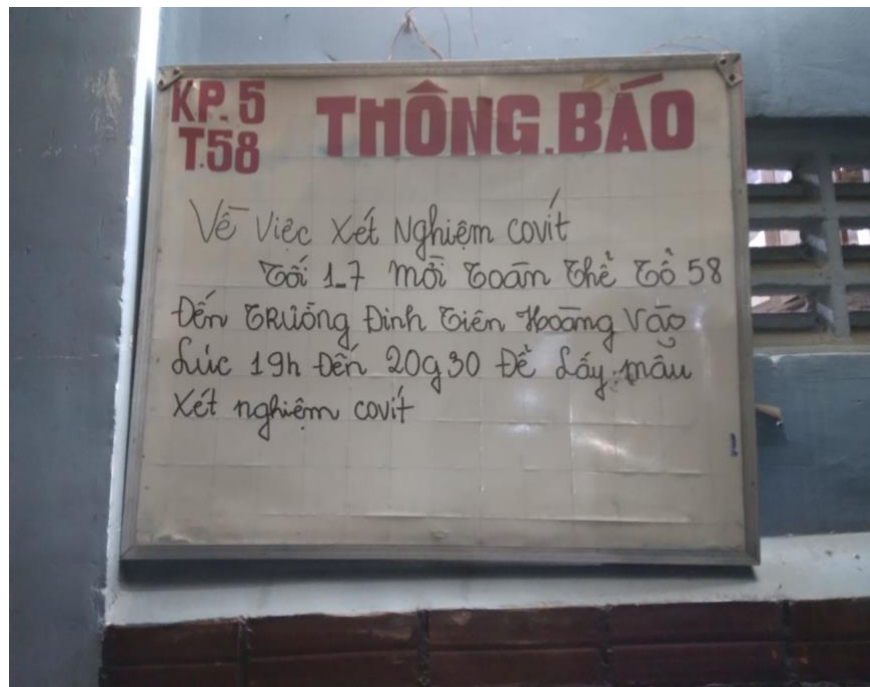 KP. 5
T.58
THÔNG.BÁO
Về Việc Xét Nghiệm covít
Tối 1-7 mời Toàn Thể Tổ 58
Đến TRường Đinh Tiên Hoàng Vào
Lúc 19h Đến 20g30 Để Lấy mẫu
Xét nghiệm covít